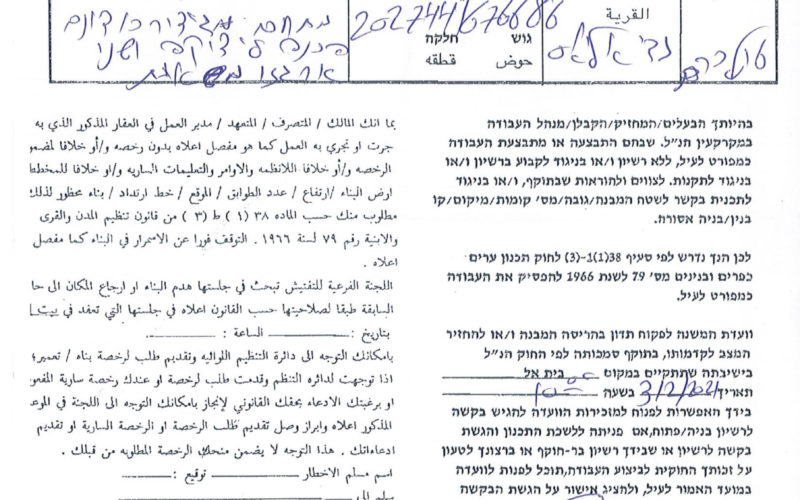 القرية
גוש חלקה
حوض قطعه
202744/676686
טול כרם
בהיותך הבעלים/המחזיק/הקבלן/מנהל העבודה
במקרקעין הנ"ל. שבהם התבצעה או מתבצעת העבודה
כמפורט לעיל, ללא רשיון ו/או בניגוד לקבוע ברשיון ו/או
בניגוד לתקנות. לצווים ולהוראות שבתוקף, ו/או בניגוד
לתכנית בקשר לשטח המבנה/גובה/מס' קומות/מיקום/קו
בנין/בניה אסורה.
לכן הנך נדרש לפי סעיף 38(1)-(3) לחוק תכנון ערים
כפרים ובנינים מס' 79 לשנת 1966 להפסיק את העבודה
כמפורט לעיל.
וועדת המשנה לפקוח תדון בהריסה המבנה ו/או להחזיר
המצב לקדמותו, בתוקף סמכותה לפי החוק הנ"ל
בישיבתה שתתקיים במקום בית אל
תאריך 3/2/2021 בשעה
בידך האפשרות לפנות למזכירות הוועדה להגיש בקשה
לרשיון בניה/פתוח,אם פניתה ללשכת התכנון והגשת
בקשה לרשיון או שבידך רשיון בר-תוקף או ברצונך לטעון
על זכותך החוקית לביצוע העבודה,תוכל לפנות לוועדה
במועד האמור לעיל, ולהציג אישור על הגשת הבקשה
بما انك المالك / المتصرف / المتعهد / مدير العمل في العقار المذكور الذي به
جرت او تجري به العمل كما هو مفصل اعلاه بدون رخصه و/أو خلافا لمضمو
الرخصه و/أو خلافا للانظمه والاوامر والتعليمات الساريه و/او خلافا للمخطط
ارض البناء /ارتفاع / عدد الطوابق / الموقع / خط ارتداد / بناء محظور لذلك
مطلوب منك حسب الماده ٣٨ (١) ط (٣) من قانون تنظيم المدن والقرى
والابنية رقم ٧٩ لسنة ١٩٦٦ . التوقف فورا عن الاسمرار في البناء كما مفصل
اعلاه .
اللجنة الفرعية للتفتيش تبحث في جلستها هدم البناء او ارجاع المكان الى حا
السابقة طبقا لصلاحيتها حسب القانون اعلاه في جلستها التي تعقد في بيت ا
بتاريخ : الساعة :
بامكانك التوجه الى دائرة التنظيم اللوائيه وتقديم طلب لرخصة بناء / تعمير؛
اذا توجهت لدائره التنظم وقدمت طلب لرخصة او عندك رخصة سارية المفعو
او برغبتك الادعاء بحقك القانوني لإنجاز بامكانك التوجه الى اللجنة في الموعد
المذكور اعلاه وابراز وصل تقديم طلب الرخصة او الرخصة السارية او تقديم
ادعاءاتك . هذا التوجه لا يضمن منحك الرخصة المطلوبه من قبلك .
اسم مسلم الاخطار توقيع :